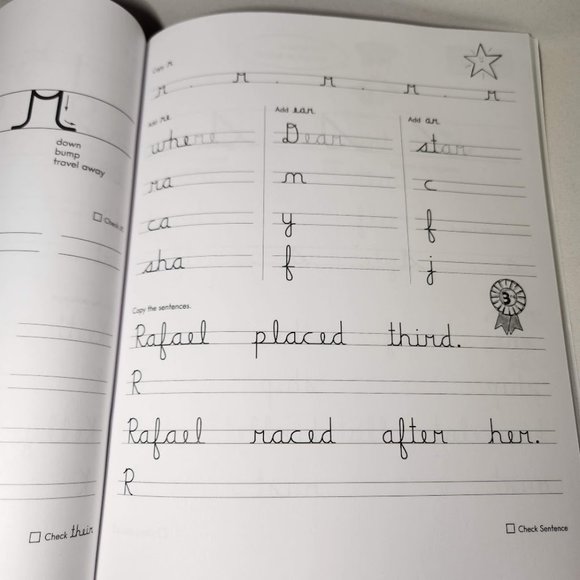 r
down
bump
travel away
Check it
Check their
Copy r.
r . r . r . r . r
Add re Add ear Add ar
where Dear star
ra n c
ca y f
sha f j
3
Copy the sentences.
Rafael placed third.
R
Rafael raced after her.
R
Check Sentence